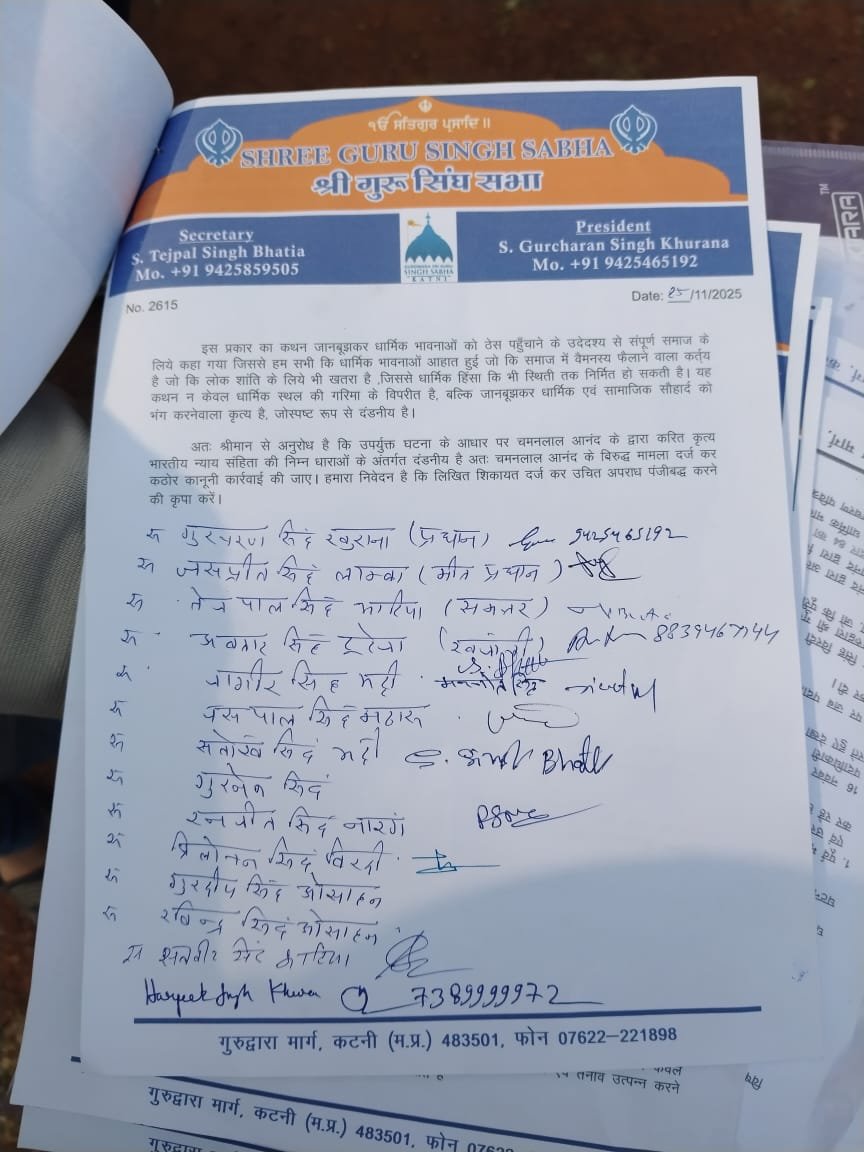 ੴ ਸਤਿਗੁਰ ਪ੍ਰਸਾਦਿ ॥
SHREE GURU SINGH SABHA
श्री गुरू सिंघ सभा
Secretary
S. Tejpal Singh Bhatia
Mo. +91 9425859505
SINGH SABHA
KATNI
President
S. Gurcharan Singh Khurana
Mo. +91 9425465192
No. 2615
Date: 25/11/2025
इस प्रकार का कथन जानबूझकर धार्मिक भावनाओं को ठेस पहुँचाने के उदेदश्य से संपूर्ण समाज के
लिये कहा गया जिससे हम सभी कि धार्मिक भावनाएं आहात हुई जो कि समाज में वैमनस्य फैलाने वाला कर्तृय
है जो कि लोक शांति के लिये भी खतरा है ,जिससे धार्मिक हिंसा कि भी स्थिती तक निर्मित हो सकती है। यह
कथन न केवल धार्मिक स्थल की गरिमा के विपरीत है, बल्कि जानबूझकर धार्मिक एवं सामाजिक सौहार्द को
भंग करनेवाला कृत्य है, जोस्पष्ट रूप से दंडनीय है।
अतः श्रीमान से अनुरोध है कि उपर्युक्त घटना के आधार पर चमनलाल आनंद के द्वारा करित कृत्य
भारतीय न्याय संहिता की निम्न धाराओं के अंतर्गत दंडनीय है अतः चमनलाल आनंद के विरुद्ध मामला दर्ज कर
कठोर कानूनी कार्रवाई की जाए। हमारा निवेदन है कि लिखित शिकायत दर्ज कर उचित अपराध पंजीबद्ध करने
की कृपा करें।
गुरचरण सिंह खुराना (प्रधान) 9425465192
जसप्रीत सिंह लाम्बा (मीत प्रधान)
तेजपाल सिंह भाटिया
सिंह 8839467144
जागीर सिंह भट्टी
जसपाल सिंह मठारू
संतोख सिंह भट्टी S. Singh Bhatti
सिंह
रनजीत सिंह नारंग
त्रिलोचन सिंह विरदी
गुरदीप सिंह ओसाहन
रविन्द्र सिंह ओसाहन
सिंह भाटिया
Singh 7389999972
गुरुद्वारा मार्ग, कटनी (म.प्र.) 483501, फोन 07622–221898
तनाव उत्पन्न करने
गुरुद्वारा मार्ग, कटनी (म.प्र.) 483501, फोन